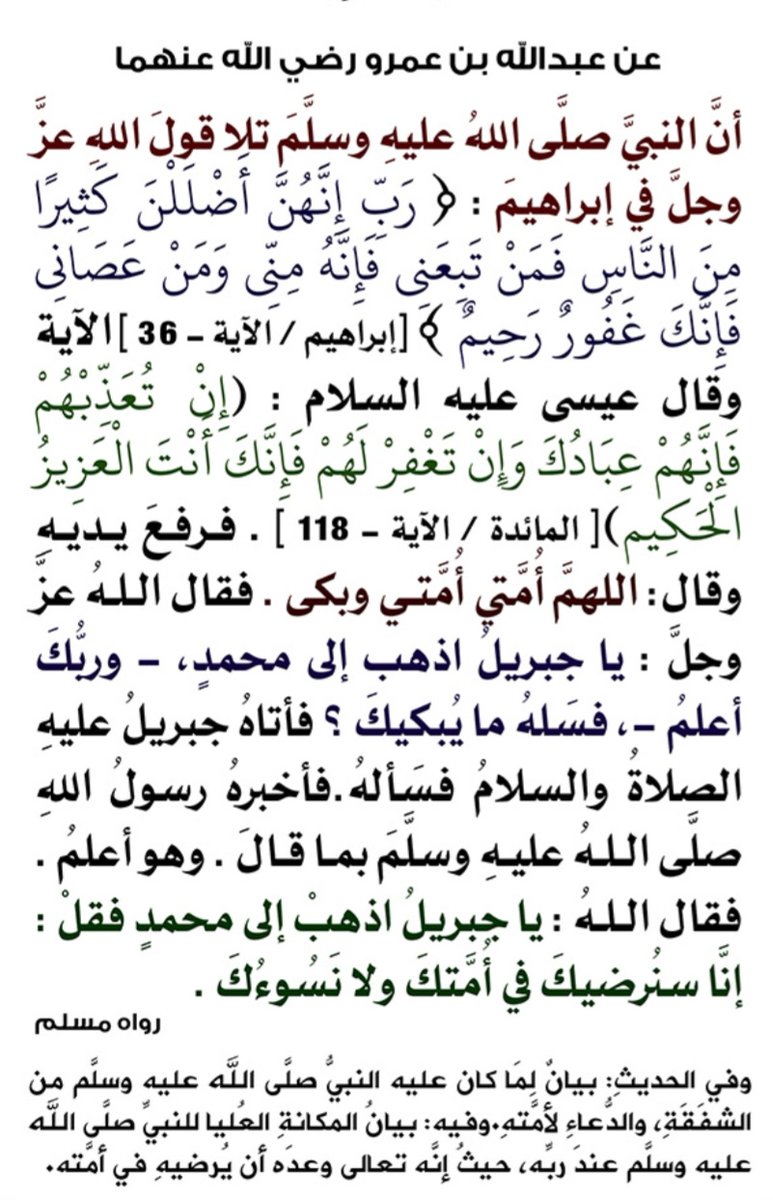 عن عبدالله بن عمرو رضي الله عنهما
أنَّ النبيَّ صلَّى اللهُ عليهِ وسلَّمَ تلا قولَ اللهِ عزَّ
وجلَّ في إبراهيمَ : ﴿ رَبِّ إِنَّهُنَّ أَضْلَلْنَ كَثِيرًا
مِنَ النَّاسِ فَمَنْ تَبِعَنِي فَإِنَّهُ مِنِّي وَمَنْ عَصَانِي
فَإِنَّكَ غَفُورٌ رَحِيمٌ ﴾ [إبراهيم / الآية – 36 ] الآية
وقال عيسى عليه السلام : (إِنْ تُعَذِّبْهُمْ
فَإِنَّهُمْ عِبَادُكَ وَإِنْ تَغْفِرْ لَهُمْ فَإِنَّكَ أَنْتَ الْعَزِيزُ
الْحَكِيم)[ المائدة / الآية – 118 ] . فرفعَ يديهِ
وقال: اللهمَّ أُمَّتي أُمَّتي وبكى . فقال اللهُ عزَّ
وجلَّ : يا جبريلُ اذهب إلى محمدٍ، – وربُّكَ
أعلمُ –، فسَلهُ ما يُبكيكَ ؟ فأتاهُ جبريلُ عليهِ
الصلاةُ والسلامُ فسَألهُ.فأخبرهُ رسولُ اللهِ
صلَّى اللهُ عليهِ وسلَّمَ بما قالَ . وهو أعلمُ .
فقال اللهُ : يا جبريلُ اذهبْ إلى محمدٍ فقلْ :
إنَّا سنُرضيكَ في أُمَّتكَ ولا نَسُوءُكَ .
رواه مسلم
وفي الحديثِ: بيانٌ لِمَا كان عليه النبيُّ صلَّى اللَّه عليه وسلَّم من
الشفَقَةِ، والدُّعاءِ لأمَّتهِ.وفيه: بيانُ المكانةِ العُليا للنبيِّ صلَّى اللَّه
عليه وسلَّم عندَ ربِّه، حيثُ إنَّه تعالى وعدَه أن يُرضيهِ في أمَّته.